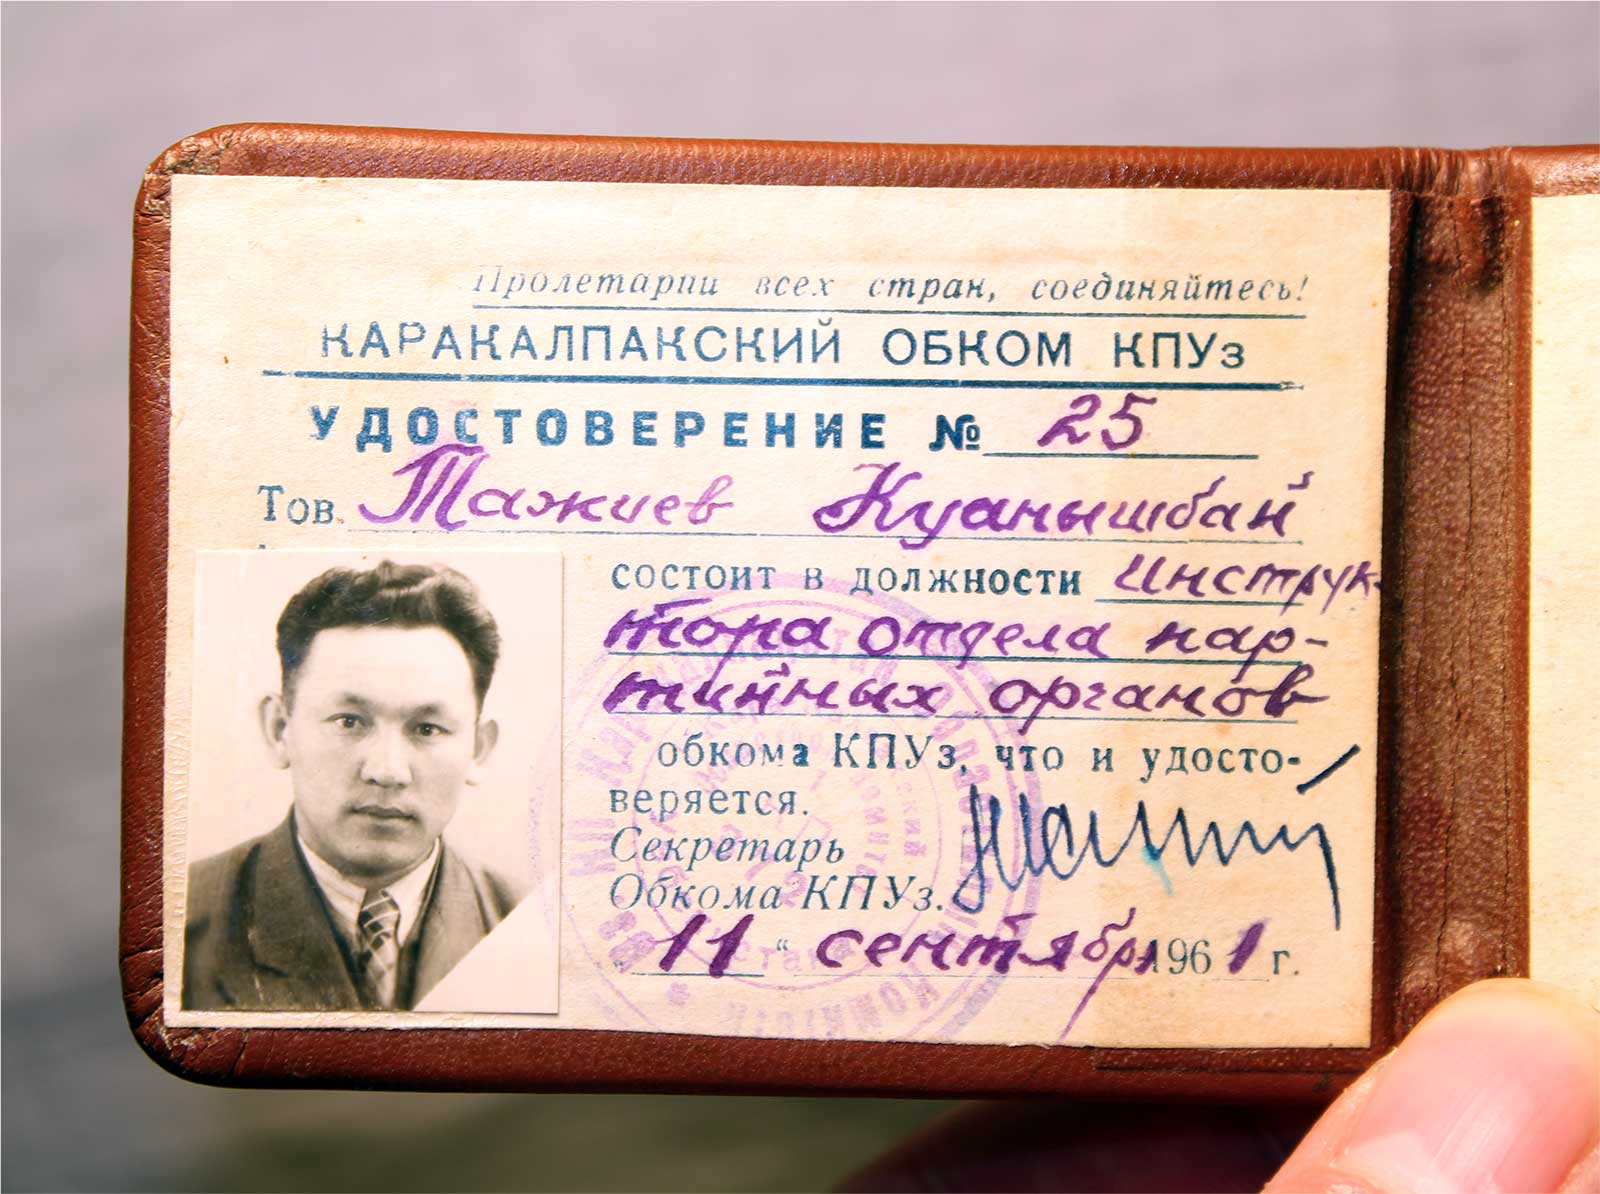 Пролетарии всех стран, соединяйтесь!
КАРАКАЛПАКСКИЙ ОБКОМ КПУз
УДОСТОВЕРЕНИЕ № 25
Тов. Тажиев Куанышбай
состоит в должности инструк-
тора отдела пар-
тийных органов
обкома КПУз, что и удосто-
веряется.
Секретарь
Обкома КПУз.
„11“ сентября 1961 г.